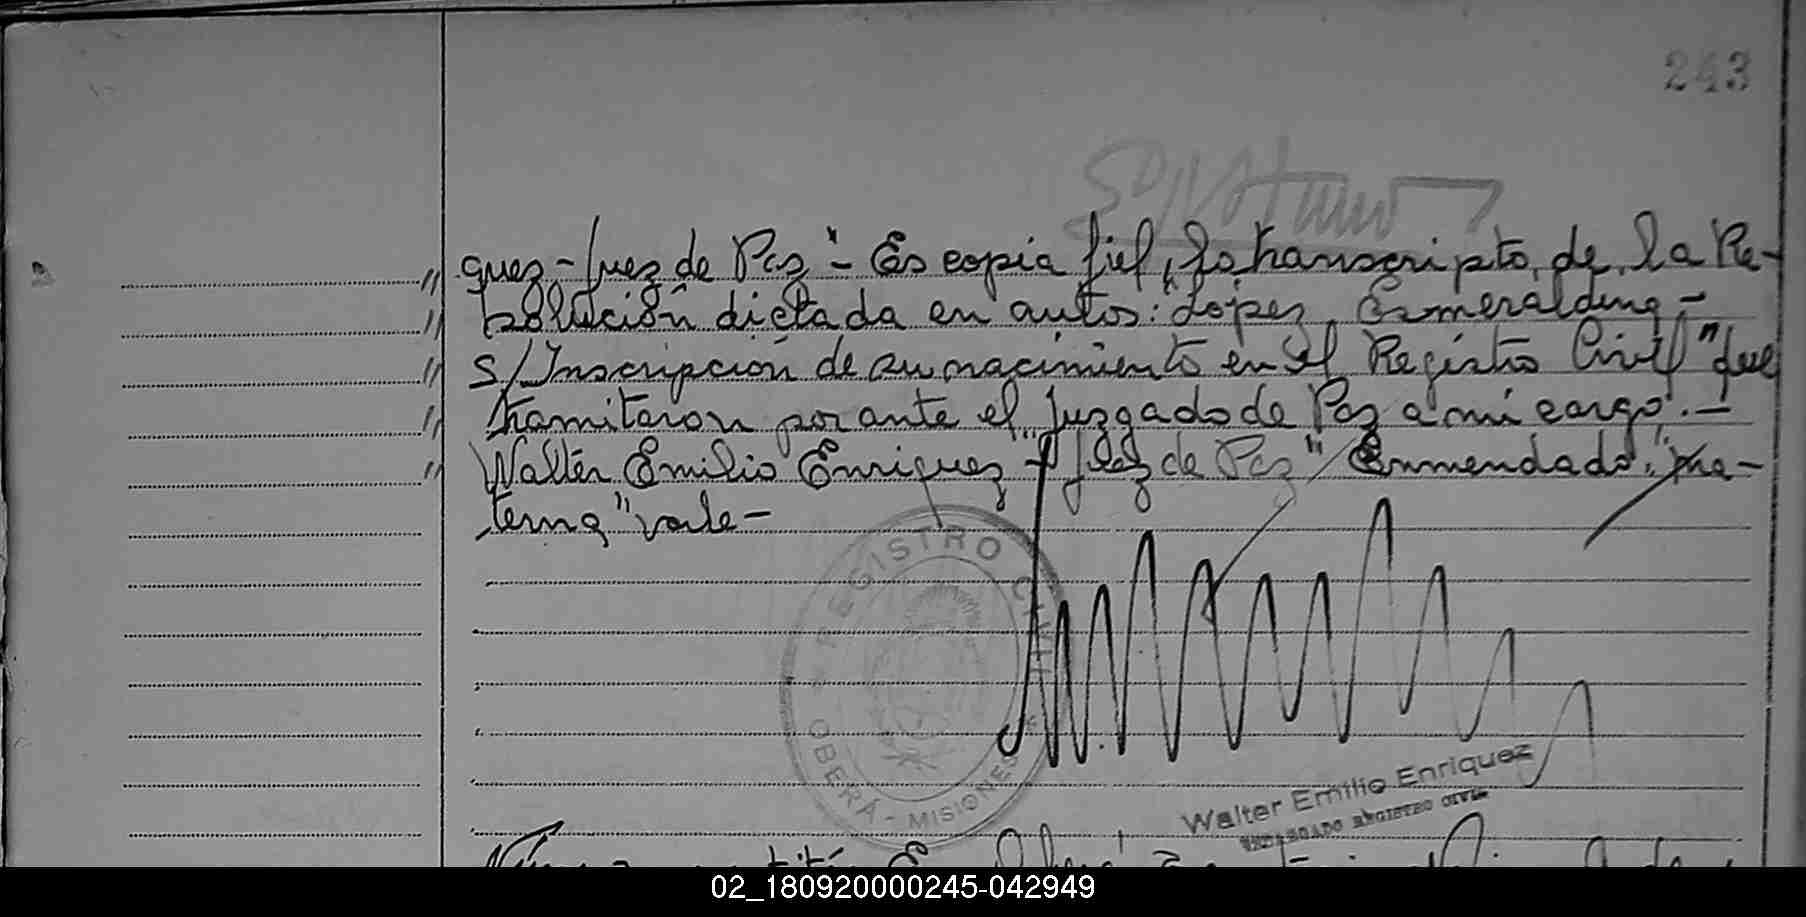 243
quez - Juez de Paz" - Es copia fiel, lo transcripto, de la Re-
solución dictada en autos: "López, Esmeraldina -
s/Inscripción de su nacimiento en el Registro Civil" que
tramitaron por ante el Juzgado de Paz a mi cargo. -
Walter Emilio Enriquez - Juez de Paz" Enmendado: "ma-
terna" vale -
REGISTRO CIVIL
OBERÁ - MISIONES
Walter Emilio Enriquez
ENCARGADO REGISTRO CIVIL
02_180920000245-042949